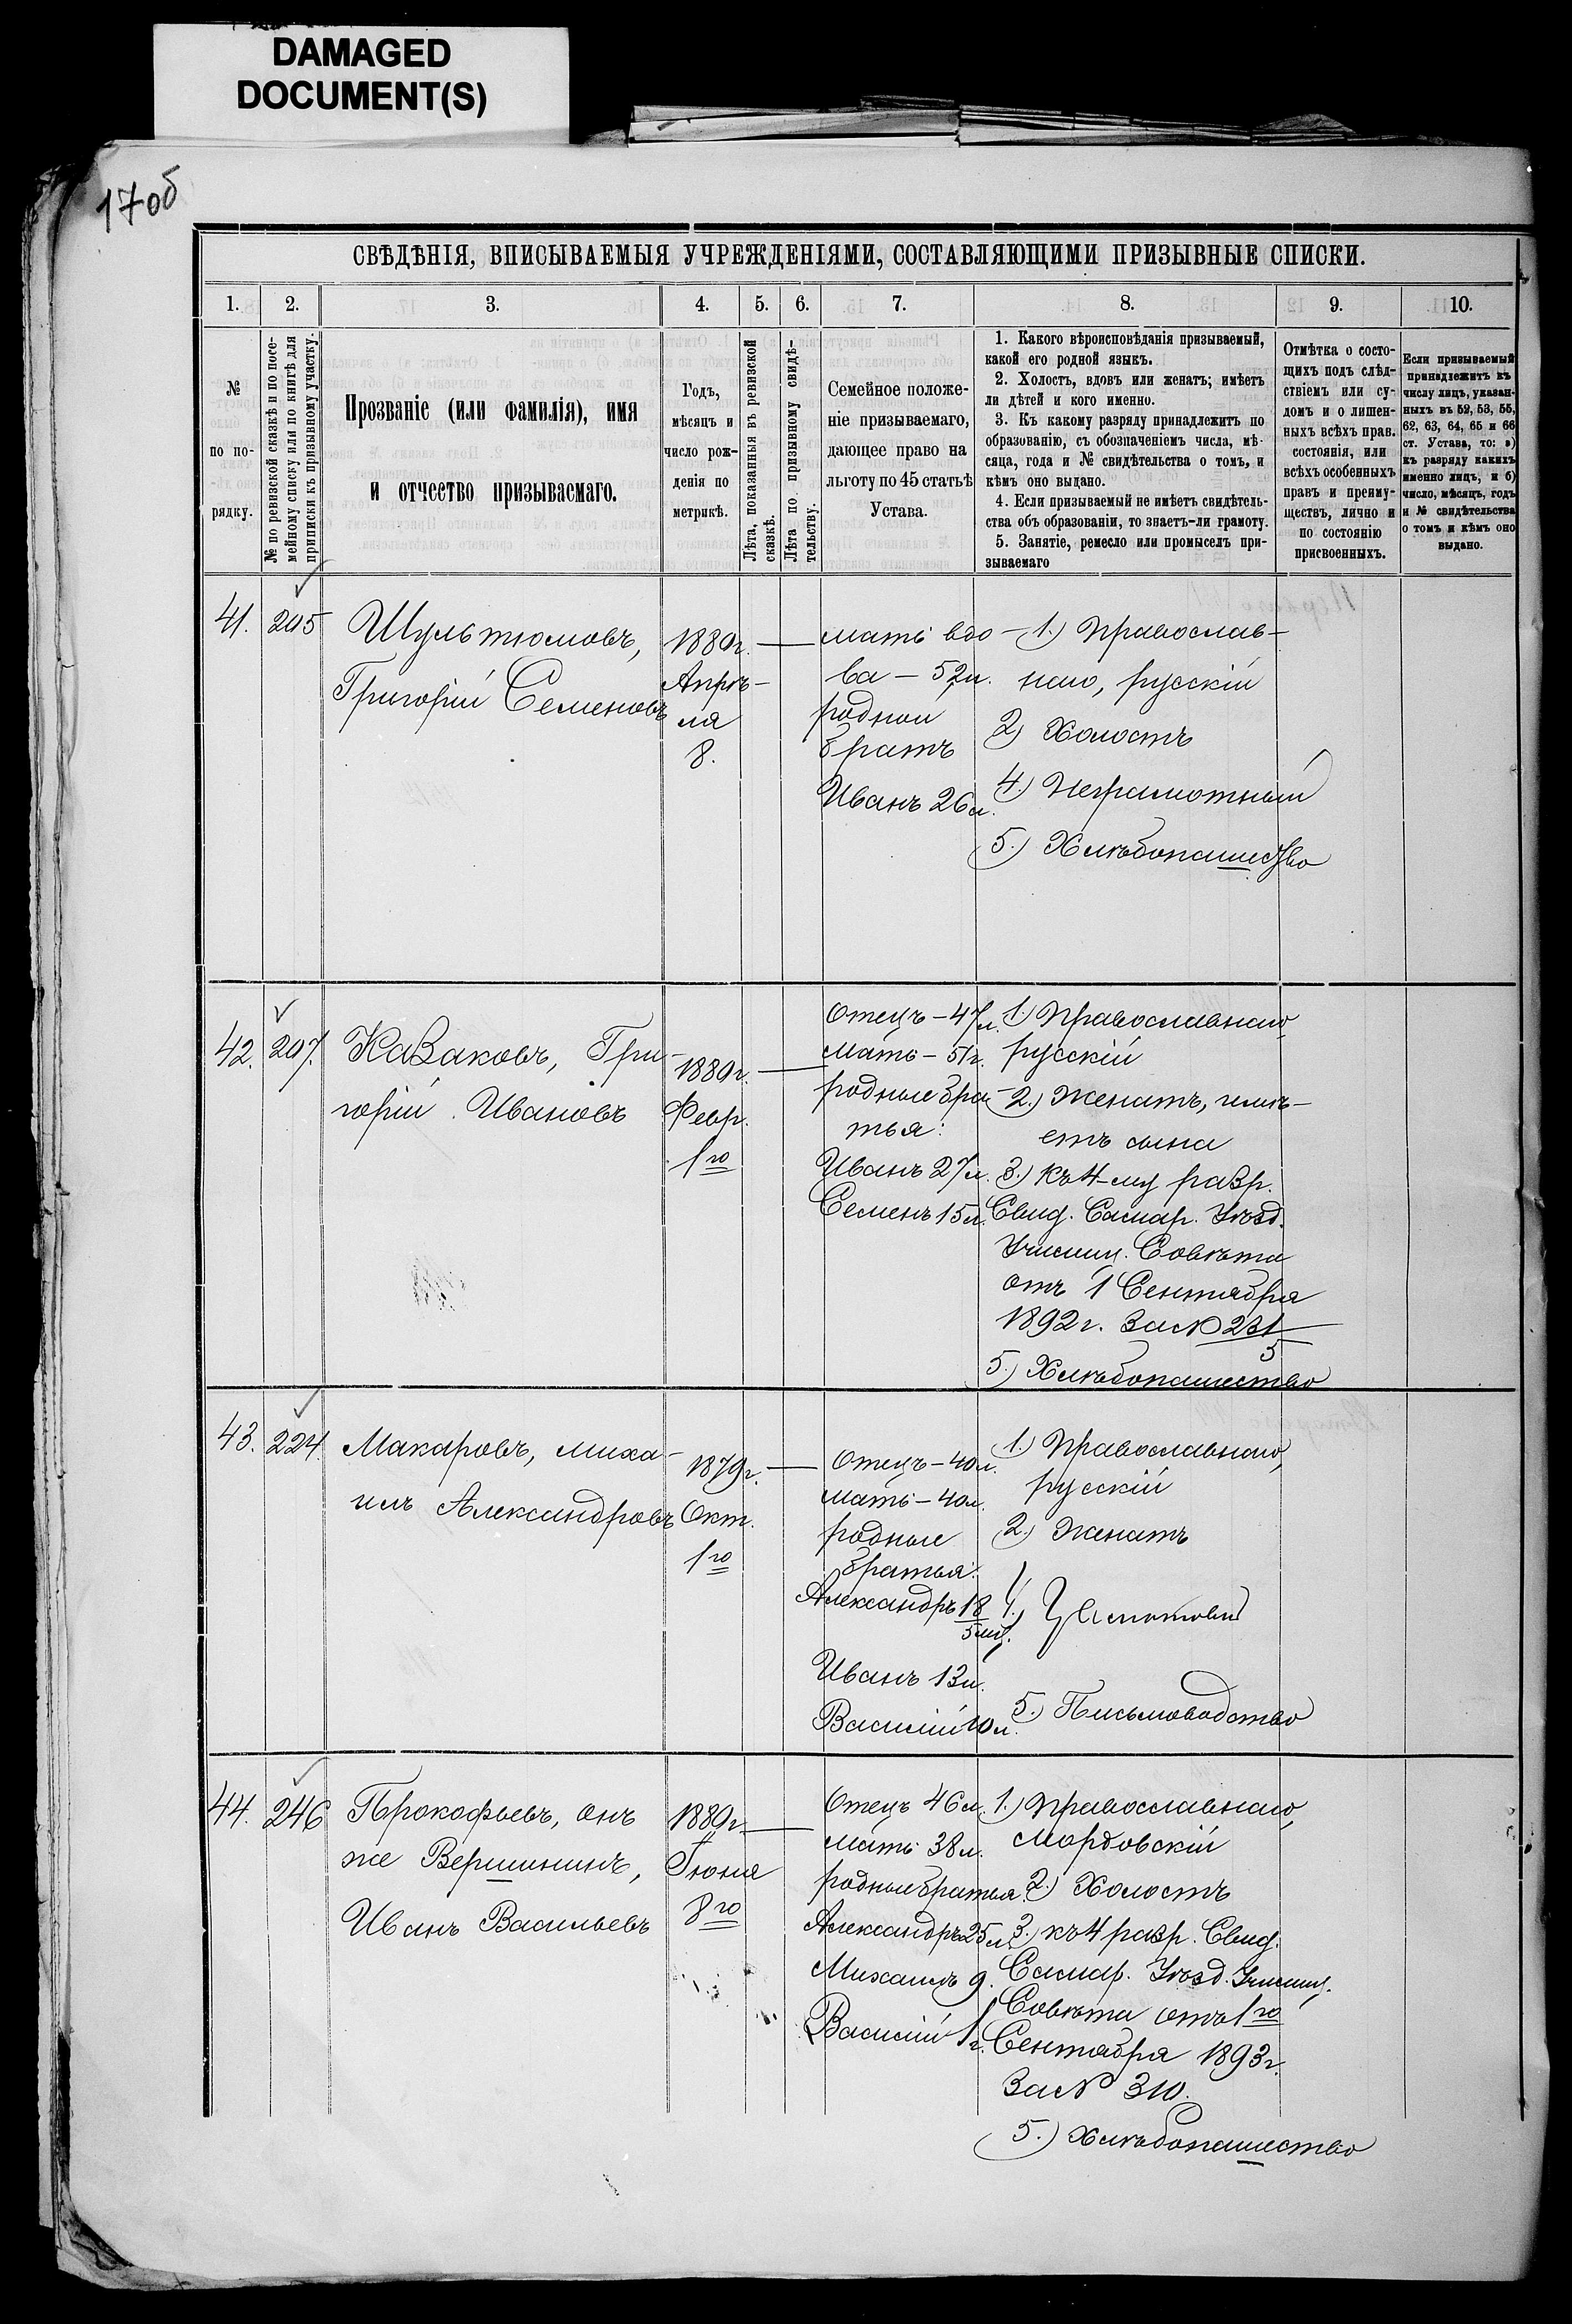 DAMAGED
DOCUMENT(S)
17об
СВѢДѢНІЯ, ВПИСЫВАЕМЫЯ УЧРЕЖДЕНІЯМИ, СОСТАВЛЯЮЩИМИ ПРИЗЫВНЫЕ СПИСКИ.
1. 2. 3. 4. 5. 6. 7. 8. 9. 10.
№
по по-
рядку.
№ по ревизской сказкѣ и по посе-
мейному списку или по книгѣ для
приписки къ призывному участку.
Прозваніе (или фамилія), имя
и отчество призываемаго.
Годъ,
мѣсяцъ и
число рож-
денія по
метрикѣ.
Лѣта, показанныя въ ревизской
сказкѣ.
Лѣта по призывному свидѣ-
тельству.
Семейное положе-
ніе призываемаго,
дающее право на
льготу по 45 статьѣ
Устава.
1. Какого вѣроисповѣданія призываемый,
какой его родной языкъ.
2. Холостъ, вдовъ или женатъ; имѣетъ
ли дѣтей и кого именно.
3. Къ какому разряду принадлежитъ по
образованію, съ обозначеніемъ числа, мѣ-
сяца, года и № свидѣтельства о томъ, и
кѣмъ оно выдано.
4. Если призываемый не имѣетъ свидѣтель-
ства объ образованіи, то знаетъ-ли грамоту.
5. Занятіе, ремесло или промыселъ при-
зываемаго
Отмѣтка о состо-
щихъ подъ слѣд-
ствіемъ или су-
домъ и о лишен-
ныхъ всѣхъ прав.
состоянія, или
всѣхъ особенныхъ
правъ и преиму-
ществъ, лично и
по состоянію
присвоенныхъ.
Если призываемый
принадлежитъ къ
числу лицъ, указан-
ныхъ въ 52, 53, 55,
62, 63, 64, 65 и 66
ст. Устава, то: а)
къ разряду какихъ
именно лицъ, и б)
число, мѣсяцъ, годъ
и № свидѣтельства
о томъ и кѣмъ оно
выдано.
41. 205
Шультюмовъ,
Григорій Семеновъ
1880г.
Апрѣ-
ля
8.
мать вдо-
ва - 52л.
родной
братъ
Иванъ 26л.
1.) Православ-
наго, русскій
2) Холостъ
4.) Неграмотный
5.) Хлѣбопашество
42. 207.
Казаковъ, Гри-
горій Ивановъ
1880г.
Февр.
1го
Отецъ - 47л.
мать - 51г.
родные бра-
тья:
Иванъ 27л.
Семенъ 15л.
1.) Православнаго,
русскій
2.) Женатъ, имѣ-
етъ сына
3.) къ 4-му разр.
Свид. Самар. Уѣзд.
Училищ. Совѣта
отъ 1 Сентября
1892г. за № 231
5
5.) Хлѣбопашество
43. 224.
Макаровъ, Миха-
илъ Александровъ
1879г.
Окт.
1го
Отецъ - 40л.
мать - 40л.
родные
братья:
Александръ 18
5 мц.
Иванъ 13л.
Василій 10л.
1.) Православнаго,
русскій
2.) Женатъ
4.)
5.) Письмоводство
44. 246
Прокофьевъ, онъ
же Вершининъ,
Иванъ Васильевъ
1880г.
Іюня
8го
Отецъ 46л.
мать 38л.
родные братья:
Александръ 25л.
Михаилъ 9.
Василій 1г.
1.) Православнаго,
Мордовскій
2.) Холостъ
3.) къ 4 разр. Свид.
Самар. Уѣзд. Училищ.
Совѣта отъ 1го
Сентября 1893г.
за № 310.
5.) Хлѣбопашество